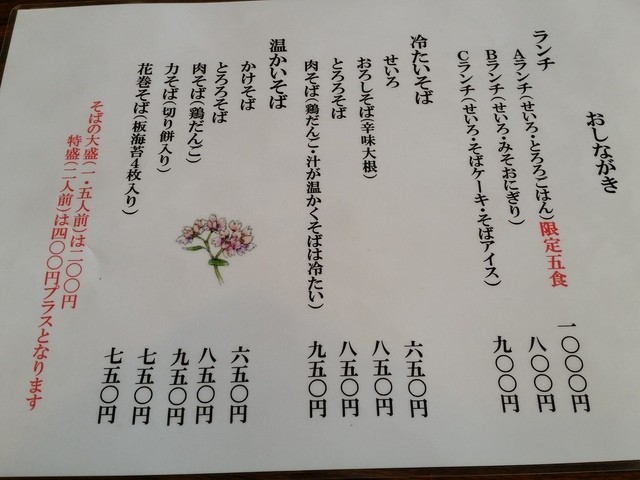 おしながき
ランチ
Aランチ(せいろ・とろろごはん)限定五食 一〇〇〇円
Bランチ(せいろ・みそおにぎり) 八〇〇円
Cランチ(せいろ・そばケーキ・そばアイス) 九〇〇円
冷たいそば
せいろ 六五〇円
おろしそば(辛味大根) 八五〇円
とろろそば 八五〇円
肉そば(鶏だんご・汁が温かくそばは冷たい) 九五〇円
温かいそば
かけそば 六五〇円
とろろそば 八五〇円
肉そば(鶏だんご) 九五〇円
力そば(切り餅入り) 七五〇円
花巻そば(板海苔4枚入り) 七五〇円
そばの大盛(一・五人前)は二〇〇円
特盛(二人前)は四〇〇円プラスとなります